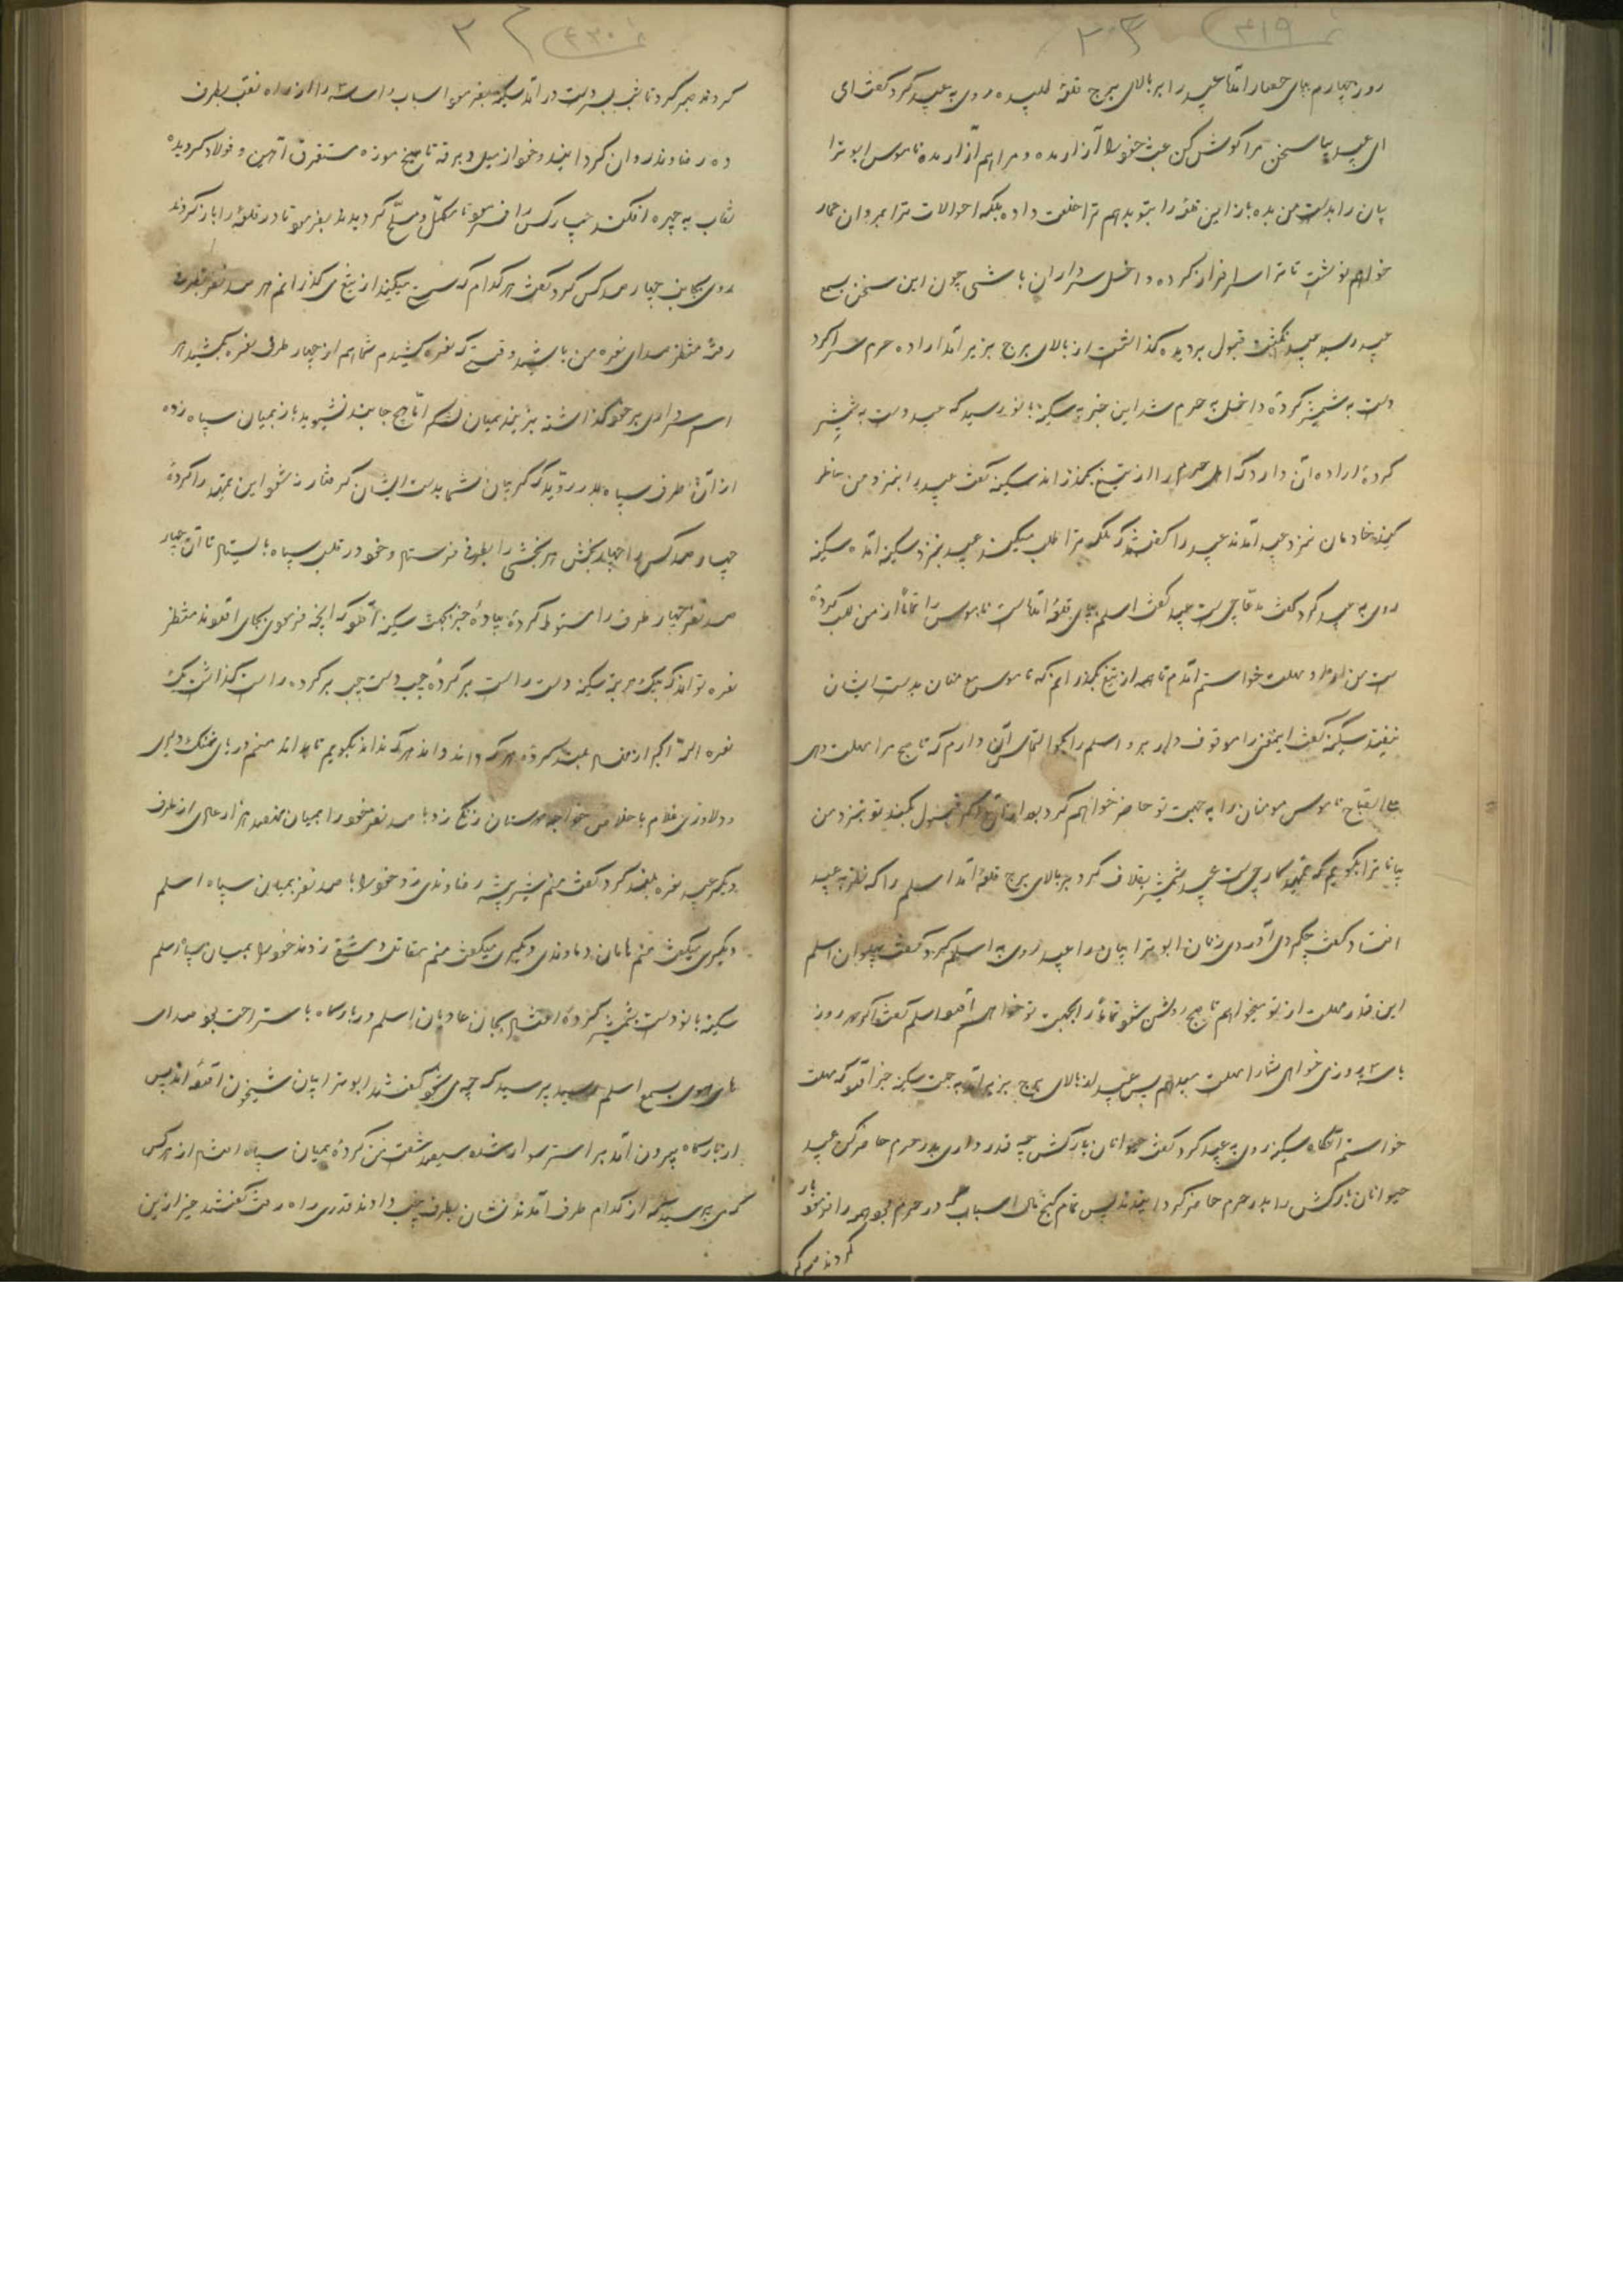 روز چهارم بپای حصار آمد تا عبید را بر بالای برج قلعه طلبیده روی به عبید کرد گفت ای
ای عبید بیا سخن مرا گوش کن عبث خود را آزار مده و مرا هم آزار مده ناموس ابوترا
بیان را بدست من بده باز این قلعه را بتو بدهم ترا خلعت داده بلکه احوالات ترا بمروان حمار
خواهم نوشت تا ترا سرافراز کرده داخل سرداران باشی چون این سخن بسمع
عبید رسید عبید انگشت قبول بر دیده گذاشت از بالای برج بزیر آمد اراده حرم سرا کرد
دست به شمشیر کرده داخل به حرم شد این خبر به سکینه بانو رسید که عبید دست به شمشیر
کرده اراده آن دارد که اهل حرم را از تیغ بگذراند سکینه گفت عبید را بنزد من حاضر
کنید خادمان نزد عبید آمدند عبید را گفتند که ملکه ترا طلب میکند عبید بنزد سکینه آمد سکینه
روی به عبید کرد گفت مدعا چیست عبید گفت اسلم بپای قلعه آمده است ناموس را تماماً از من طلب کرده
است من از او مهلت خواستم آمدم تا همه از تیغ بگذرانم که ناموس مؤمنان بدست ایشان
نیفتد سکینه گفت اینمعنی را موقوف دار برو اسلم را بگو التماس آن دارم که تا صبح مرا مهلت دهی
علی الصباح ناموس مومنان را به جهت تو حاضر خواهم کرد بعد از آن اگر قبول کند تو بنزد من
بیا تا ترا بگویم که تمهید کار چیست عبید شمشیر بغلاف کرد بر بالای برج قلعه آمد اسلم را که نظر به عبید
افتاد گفت چکم دی آوردی زنان ابوترابیان را عبید روی به اسلم کرد گفت پهلوان اسلم
این قدر مهلت از تو میخواهم تا صبح روشن شود تماماً را بجهت تو خواهم آورد اسلم گفت اگر دو روز
یا سه روز می خواهی شما را مهلت میدهم پس عبید از بالای برج بزیر آمد به جهت سکینه خبر آورد که مهلت
خواستم آنگاه سکینه روی به عبید کرد گفت حیوانان بارکش چه قدر داری بدر حرم حاضر کن عبید
حیوانان بارکش را بدر حرم حاضر کردانیدند پس تمام گنج مال اسباب که در حرم بود همه را فرمود بار
کردند صبر کر
کردند صبر کرد تا شب بسر دست در آمد سکینه بفرمود اسباب را راست را از راه نقب بطرف
ده رفاوند روان کردانیدند و خود از میل و برقه تا میخ موزه مستغرق آهن و فولاد کردیده
نقاب به چهره افکند چهار کس را فرمود تا مکمل و مسلح کردیدند بفرمود تا در قلعه را باز کردند
روی بجانب چهار صد کس کرد گفت هر کدام که سستی میکنید از تیغ می گذرانم هر صد نفر بطرف
رفته منتظر صدای نعره من باشید وقتی که نعره کشیدم شما هم از چهار طرف نعره بکشید هر
اسم سرداری بر خود گذاشته بزنید بمیان لشکر اما هیچ جا بند نشوید باز بمیان سپاه زده
از آن طرف سپاه بدر روید که گریبان شما بدست ایشان گرفتار نشود این تمهید را کرده
چهار صد کس را چهار بخش هر بخشی را بطرفی فرستاد و خود در قلب سپاه بایستاد تا آن چهار
صد نفر چهار طرف را مضبوط کرده پیاده خبر بجهت سکینه آورد که آنچه فرمودی بجای آوردند منتظر
نعره تواند که یک مرتبه سکینه دست راست بر کرده چپ دست چپ بر کرده راست گذاشت یک
نعره الله اکبر از جگر بلند کرده هر که داند داند هر که نداند بگویم تا بداند منم دریای جنگ دلیری
و دلاوری غلام باخلاص خواجه مهرستان زنگ زد با صد نفر خود را بمیان هفصد هزار عادی از طرف
دیگر عبید نعره بلند کرد گفت منم شیر بیشه رفاوندی زد خود را با صد نفر بمیان سپاه اسلم
دیگری میگفت منم ماهان دماوندی دیگری میگفت منم مقاتل و تیغ زدند خود را بمیان سپاه اسلم
سکینه بانو دست بشمشیر کرده افتاد بجان عادیان اسلم در بارگاه باستراحت بود صدای
های هوی بسمع اسلم رسید پرسید که چه می شود گفتند ابوترابیان شبیخون آورده اند پس
از بارگاه بیرون آمد بر استر سوار شده سیصد شصت من کرده بمیان سپاه افتاد از هر کس
که می پرسید که از کدام طرف آمدند نشان بطرف چپ دادند قدری راه رفت گفتند خیر از این